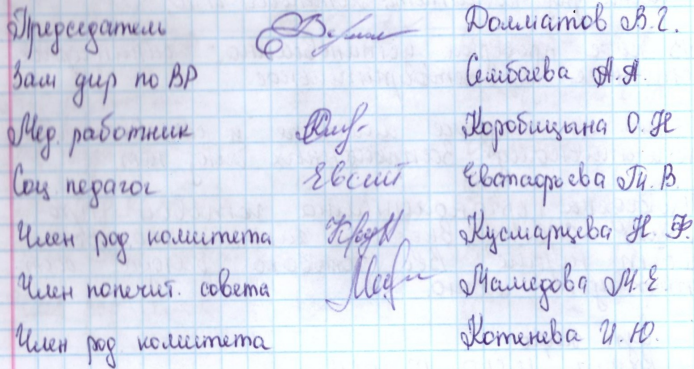 Председатель Долматов В.Г.
Зам дир по ВР Сембаева А.А.
Мед. работник Коробицына О.Н
Соц педагог Евстафьева Т. В
Член род комитета Кусмарцева Н. Ф.
Член попечит. совета Мамедова М. Е
Член род комитета Котенева И. Ю.